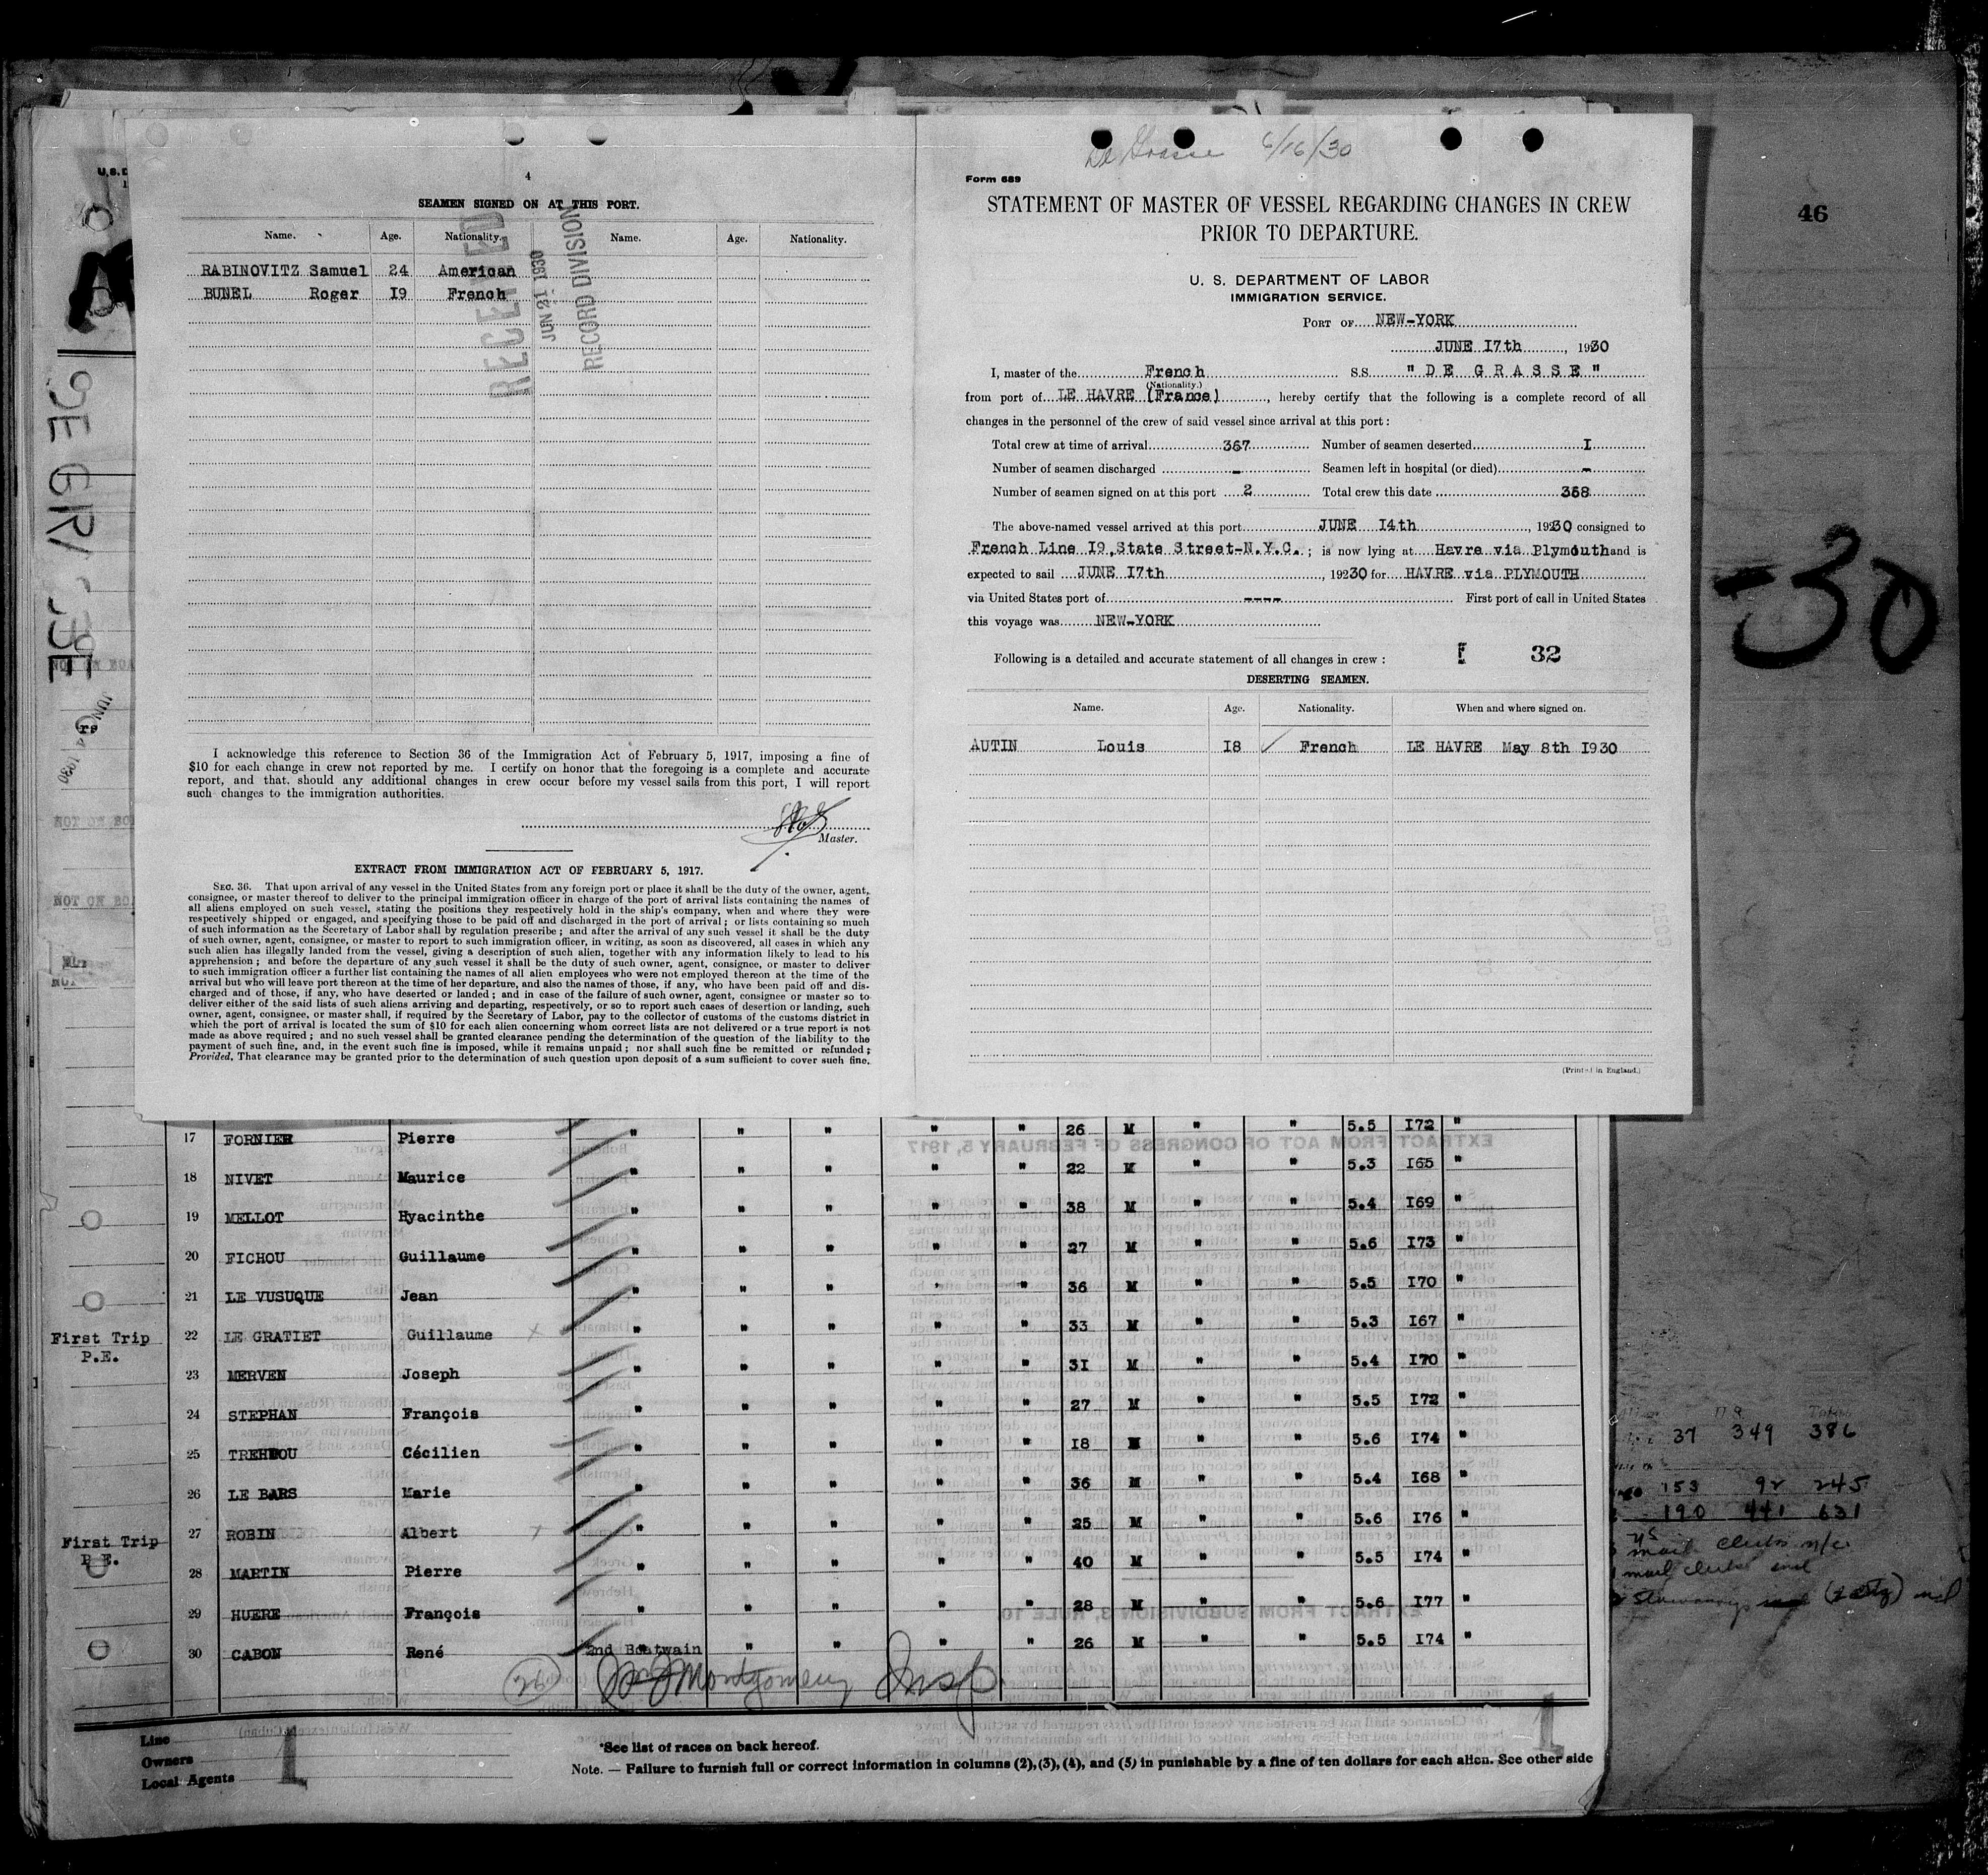 4
SEAMEN SIGNED ON AT THIS PORT.
Name. Age. Nationality. Name. Age. Nationality.
RABINOVITZ Samuel 24 American
BUNEL Roger I9 French
RECEIVED
JUN 21 1930
RECORD DIVISION
I acknowledge this reference to Section 36 of the Immigration Act of February 5, 1917, imposing a fine of
$10 for each change in crew not reported by me. I certify on honor that the foregoing is a complete and accurate
report, and that. should any additional changes in crew occur before my vessel sails from this port, I will report
such changes to the immigration authorities.
Master.
EXTRACT FROM IMMIGRATION ACT OF FEBRUARY 5, 1917.
SEC. 36. That upon arrival of any vessel in the United States from any foreign port or place it shall be the duty of the owner, agent,
consignee, or master thereof to deliver to the principal immigration officer in charge of the port of arrival lists containing the names of
all aliens employed on such vessel, stating the positions they respectively hold in the ship's company, when and where they were
respectively shipped or engaged, and specifying those to be paid off and discharged in the port of arrival; or lists containing so much
of such information as the Secretary of Labor shall by regulation prescribe; and after the arrival of any such vessel it shall be the duty
of such owner, agent, consignee, or master to report to such immigration officer, in writing, as soon as discovered, all cases in which any
such alien has illegally landed from the vessel, giving a description of such alien, together with any information likely to lead to his
apprehension; and before the departure of any such vessel it shall be the duty of such owner, agent, consignee, or master to deliver
to such immigration officer a further list containing the names of all alien employees who were not employed thereon at the time of the
arrival but who will leave port thereon at the time of her departure, and also the names of those, if any, who have been paid off and dis-
charged and of those, if any, who have deserted or landed; and in case of the failure of such owner, agent, consignee or master so to
deliver either of the said lists of such aliens arriving and departing, respectively, or so to report such cases of desertion or landing, such
owner, agent, consignee, or master shall, if required by the Secretary of Labor, pay to the collector of customs of the customs district in
which the port of arrival is located the sum of $10 for each alien concerning whom correct lists are not delivered or a true report is not
made as above required; and no such vessel shall be granted clearance pending the determination of the question of the liability to the
payment of such fine, and, in the event such fine is imposed, while it remains unpaid; nor shall such fine be remitted or refunded;
Provided, That clearance may be granted prior to the determination of such question upon deposit of a sum sufficient to cover such fine.
De Grasse 6/16/30
Form 689
STATEMENT OF MASTER OF VESSEL REGARDING CHANGES IN CREW
PRIOR TO DEPARTURE.
U. S. DEPARTMENT OF LABOR
IMMIGRATION SERVICE.
PORT OF NEW-YORK
JUNE I7th, 1930
I, master of the French S.S. "DE GRASSE"
(Nationality.)
from port of LE HAVRE (France), hereby certify that the following is a complete record of all
changes in the personnel of the crew of said vessel since arrival at this port:
Total crew at time of arrival 367 Number of seamen deserted I
Number of seamen discharged - Seamen left in hospital (or died) -
Number of seamen signed on at this port 2 Total crew this date 368
The above-named vessel arrived at this port JUNE I4th, 19230 consigned to
French Line I9,State Street-N.Y.C.; is now lying at Havre via Plymouth and is
expected to sail JUNE I7th, 19230 for HAVRE via PLYMOUTH
via United States port of ---- First port of call in United States
this voyage was NEW-YORK
Following is a detailed and accurate statement of all changes in crew: 32
DESERTING SEAMEN.
Name. Age. Nationality. When and where signed on.
AUTIN Louis I8 French LE HAVRE May 8th I930
(Printed in England.)
46
-30
DE GRASSE
17 FORNIER Pierre " " " " " 26 M " " 5.5 I72 "
18 NIVET Maurice " " " " " 22 M " " 5.3 I65 "
19 MELLOT Hyacinthe " " " " " 38 M " " 5.4 I69 "
20 FICHOU Guillaume " " " " " 27 M " " 5.6 I73 "
21 LE VUSUQUE Jean " " " " " 36 M " " 5.5 I70 "
First Trip
P.E.
22 LE GRATIET Guillaume " " " " " 33 M " " 5.3 I67 "
23 MERVEN Joseph " " " " " 3I M " " 5.4 I70 "
24 STEPHAN François " " " " " 27 M " " 5.5 I72 "
25 TREHDOU Cécilien " " " " " I8 M " " 5.6 I74 "
26 LE BARS Marie " " " " " 36 M " " 5.4 I68 "
First Trip
P.E.
27 ROBIN Albert " " " " " 25 M " " 5.6 I76 "
28 MARTIN Pierre " " " " " 40 M " " 5.5 I74 "
29 HUERE François " " " " " 28 M " " 5.6 I77 "
30 CABON René 2nd Boatwain " " " " 26 M " " 5.5 I74 "
26 Montgomery Insp
Line
Owners
Local Agents
1
1
*See list of races on back hereof.
Note. — Failure to furnish full or correct information in columns (2), (3), (4), and (5) in punishable by a fine of ten dollars for each alien. See other side
37 349 386
153 92 245
190 441 631
mail clerks
mail clerks incl